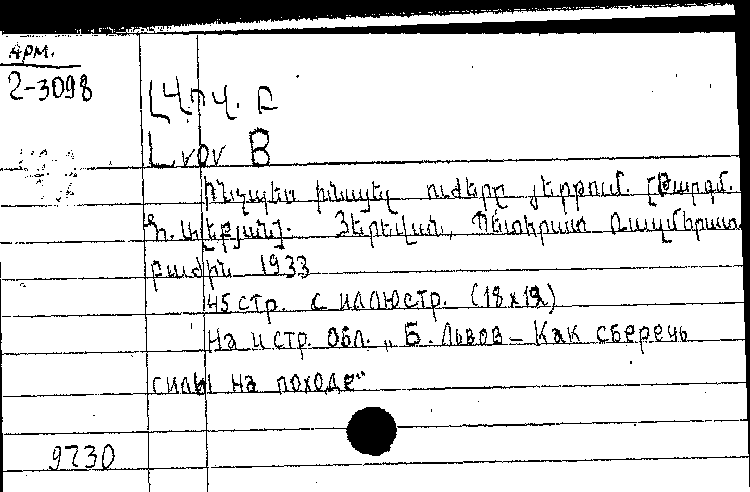 Арм.
2-3098
Լվով. Բ
Lvov B
Ինչպես խնայել ուժերը յերթում. [Թարգմ.
Յերեվան, Պետհրատ Ռազմհրատ.
բաժին 1933
45 стр. с иллюстр. (18x12)
На 4 стр. обл. „Б. Львов – Как сберечь
силы на походе"
9730